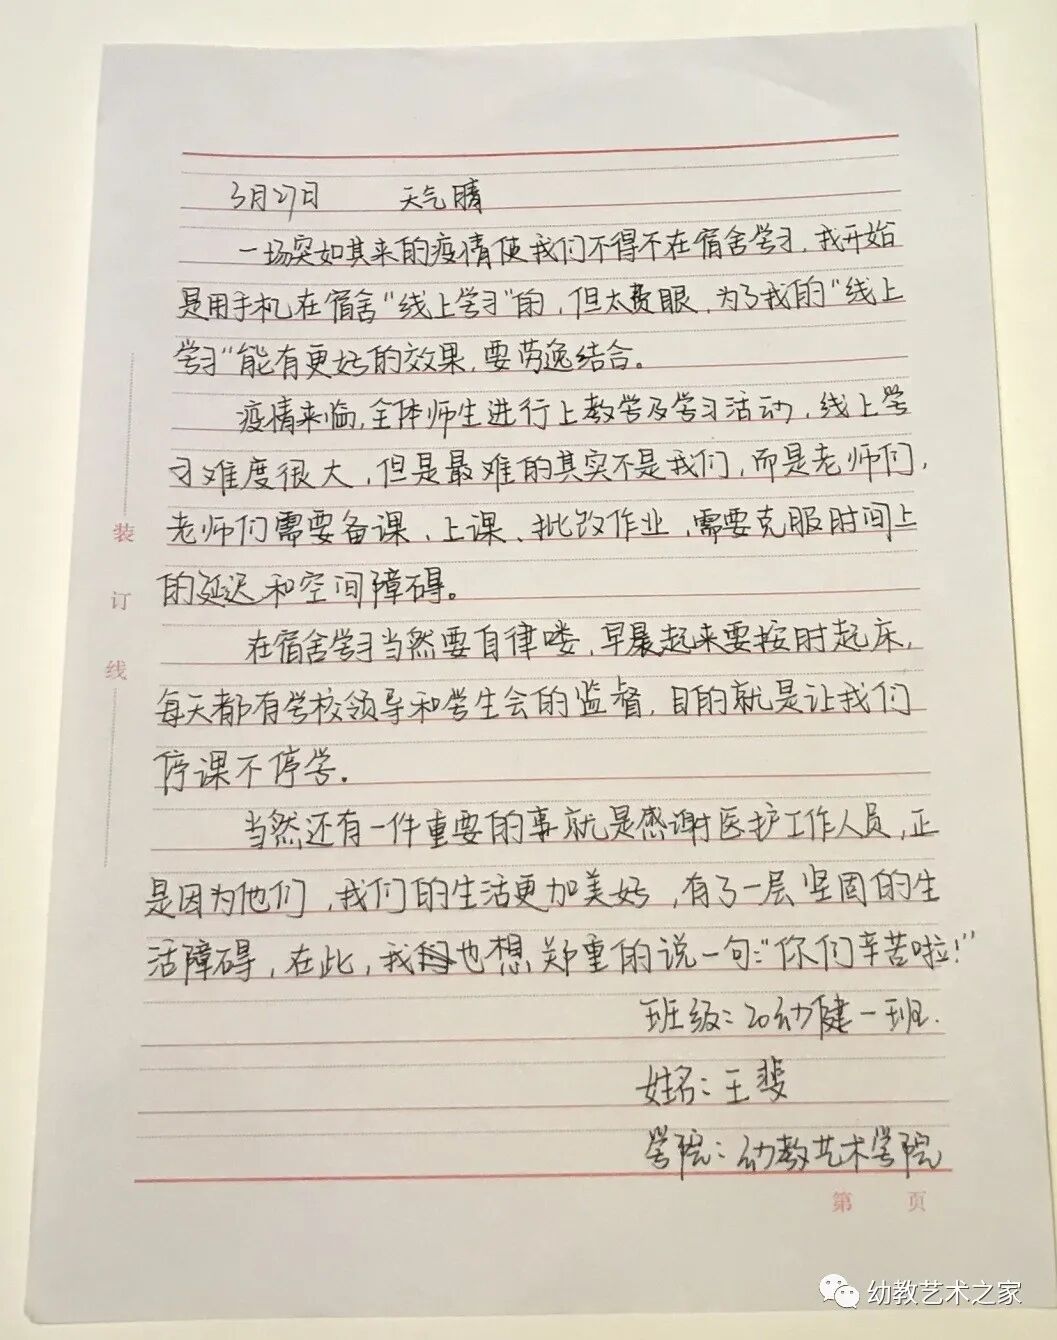 3月27日 天气晴
一场突如其来的疫情使我们不得不在宿舍学习，我开始
是用手机在宿舍“线上学习”的，但太费眼，为了我的“线上
学习”能有更好的效果，要劳逸结合。
疫情来临，全体师生进行上教学及学习活动，线上学
习难度很大，但是最难的其实不是我们，而是老师们，
老师们需要备课、上课、批改作业，需要克服时间上
的延迟和空间障碍。
在宿舍学习当然要自律喽，早晨起来要按时起床，
每天都有学校领导和学生会的监督，目的就是让我们
停课不停学.
当然还有一件重要的事就是感谢医护工作人员，正
是因为他们，我们的生活更加美好，有了一层坚固的生
活障碍，在此，我也想郑重的说一句：“你们辛苦啦！”
班级：20幼健一班.
姓名：王斐
学院：幼教艺术学院
装
订
线
第 页
幼教艺术之家